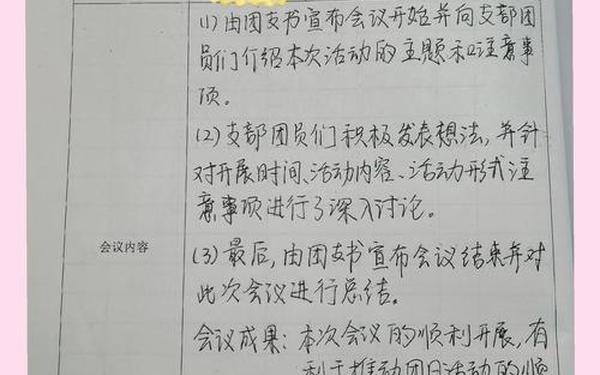 (1)由团支书宣布会议开始并向支部团
员们介绍本次活动的主题和注意事
项。
(2)支部团员们积极发表想法,并针
对开展时间、活动内容、活动形式注
意事项进行了深入讨论。
会议内容
(3)最后,由团支书宣布会议结束并对
此次会议进行总结。
会议成果:本次会议的顺利开展,有
利于推动团日活动的顺